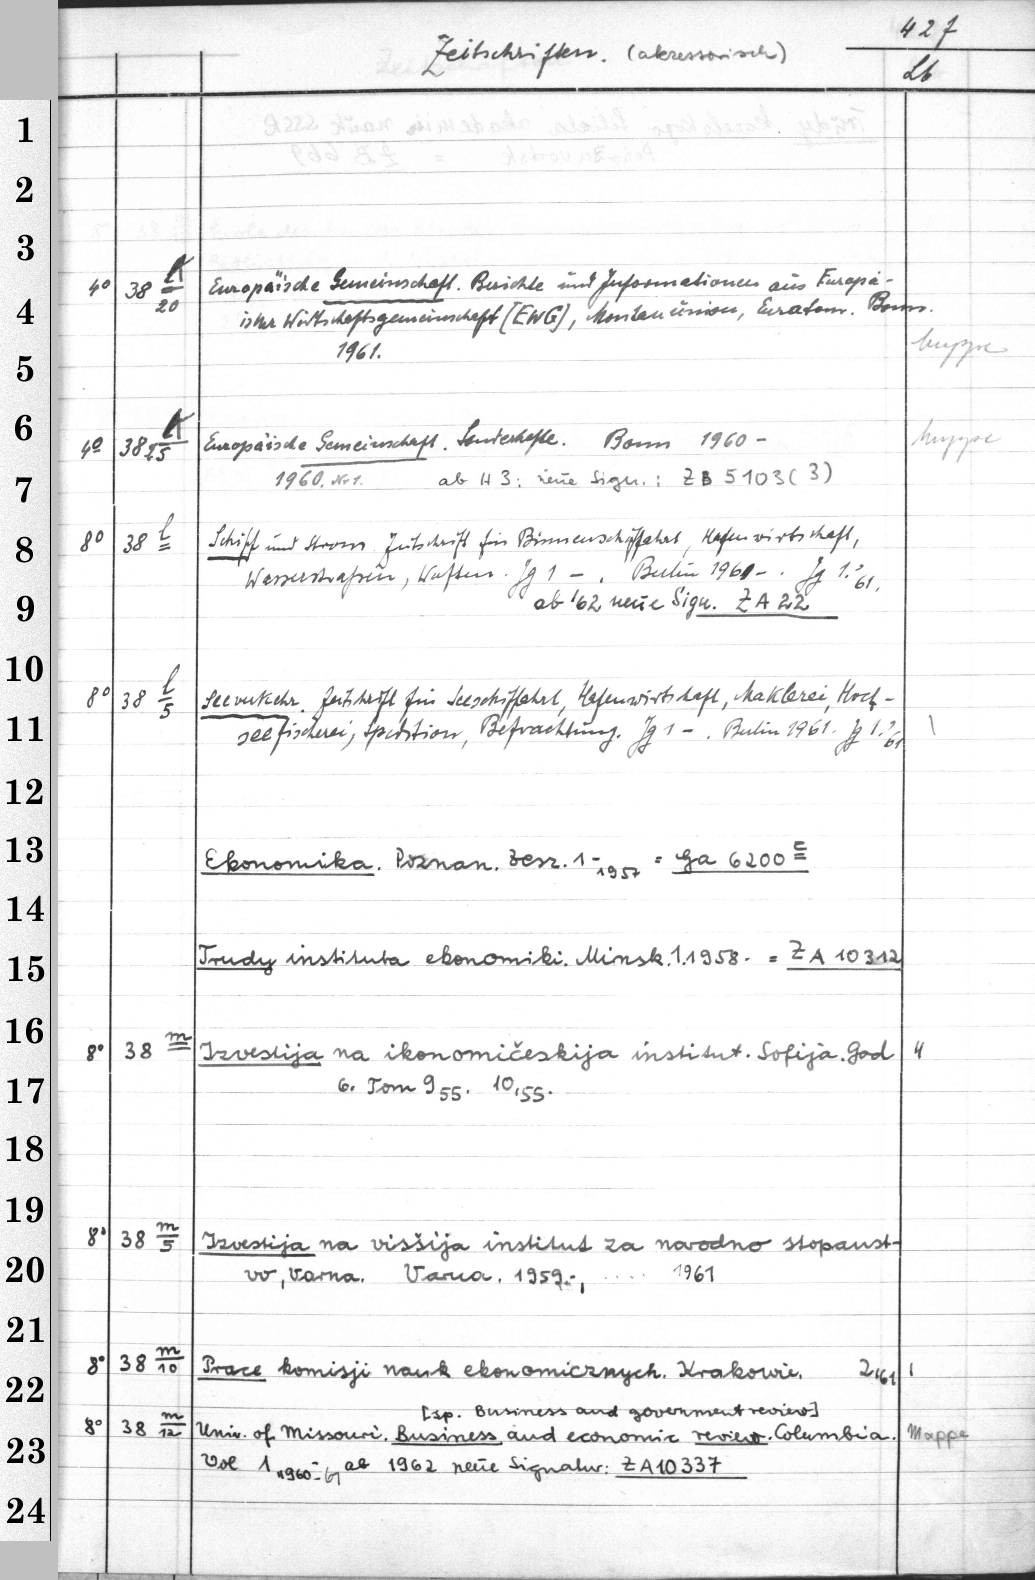 427
Zeitschriften. (akzessorisch)
Lb
1
2
3
4° 38 K/20 Europäische Gemeinschaft. Berichte und Informationen aus Europä-
4 ischer Wirtschaftsgemeinschaft [EWG], Montanunion, Euratom. Bonn.
5 1961. Mappe
6 4° 38 K/25 Europäische Gemeinschaft. Sonderhefte. Bonn 1960 - Mappe
7 1960. Nr 1. ab H 3: neue Sign.: ZB 5103 (3)
8 8° 38 l Schiff und Strom. Zeitschrift für Binnenschiffahrt, Hafenwirtschaft,
Wasserstraßen, Werften. Jg 1 - . Berlin 1961 - . Jg 1. '61.
9 ab '62 neue Sign. ZA 22
10
8° 38 l/5 Seeverkehr. Zeitschrift für Seeschiffahrt, Hafenwirtschaft, Maklerei, Hoch-
11 seefischerei, Spedition, Befrachtung. Jg 1 - . Berlin 1961. Jg 1. '61
12
13 Ekonomika. Poznan. Zesz. 1-1957 = Ga 6200 c
14
15 Trudy instituta ekonomiki. Minsk. 1.1958- = ZA 10312
16 8° 38 m Izvestija na ikonomičeskija institut. Sofija. God 4
17 6. Tom 9,55. 10,55.
18
19
8° 38 m/5 Izvestija na visšija institut za narodno stopanst-
20 vo, Varna. Varna. 1959.-, ..... 1961
21
22 8° 38 m/10 Prace komisji nauk ekonomicznych. Krakowie. 2,'61 1
[sp. Business and government review]
23 8° 38 m/12 Univ. of Missouri. Business and economic review. Columbia. Mappe
Vol 1, 1960-61 ab 1962 neue Signatur: ZA 10337
24